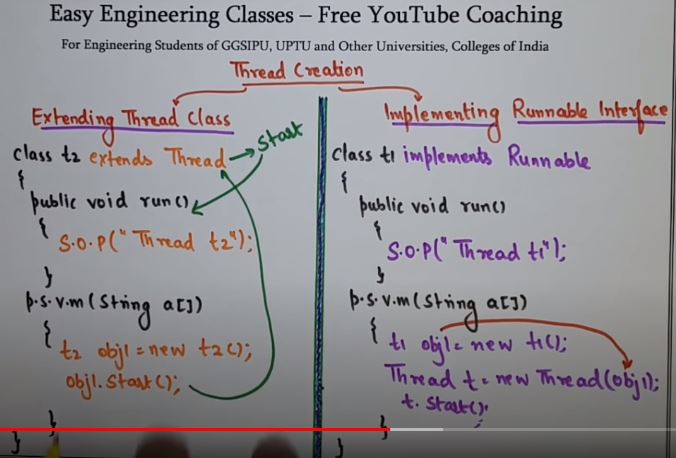 Easy Engineering Classes – Free YouTube Coaching
For Engineering Students of GGSIPU, UPTU and Other Universities, Colleges of India
Thread Creation
Extending Thread Class
class t2 extends Thread → Start
{
public void run()
{
S.O.P("Thread t2");
}
p.s.v.m(String a[])
{
t2 obj1 = new t2();
obj1.Start();
}
}
Implementing Runnable Interface
Class t1 implements Runnable
{
public void run()
{
S.O.P("Thread t1");
}
p.s.v.m(String a[])
{
t1 obj1 = new t1();
Thread t = new Thread(obj1);
t. Start();
}
}